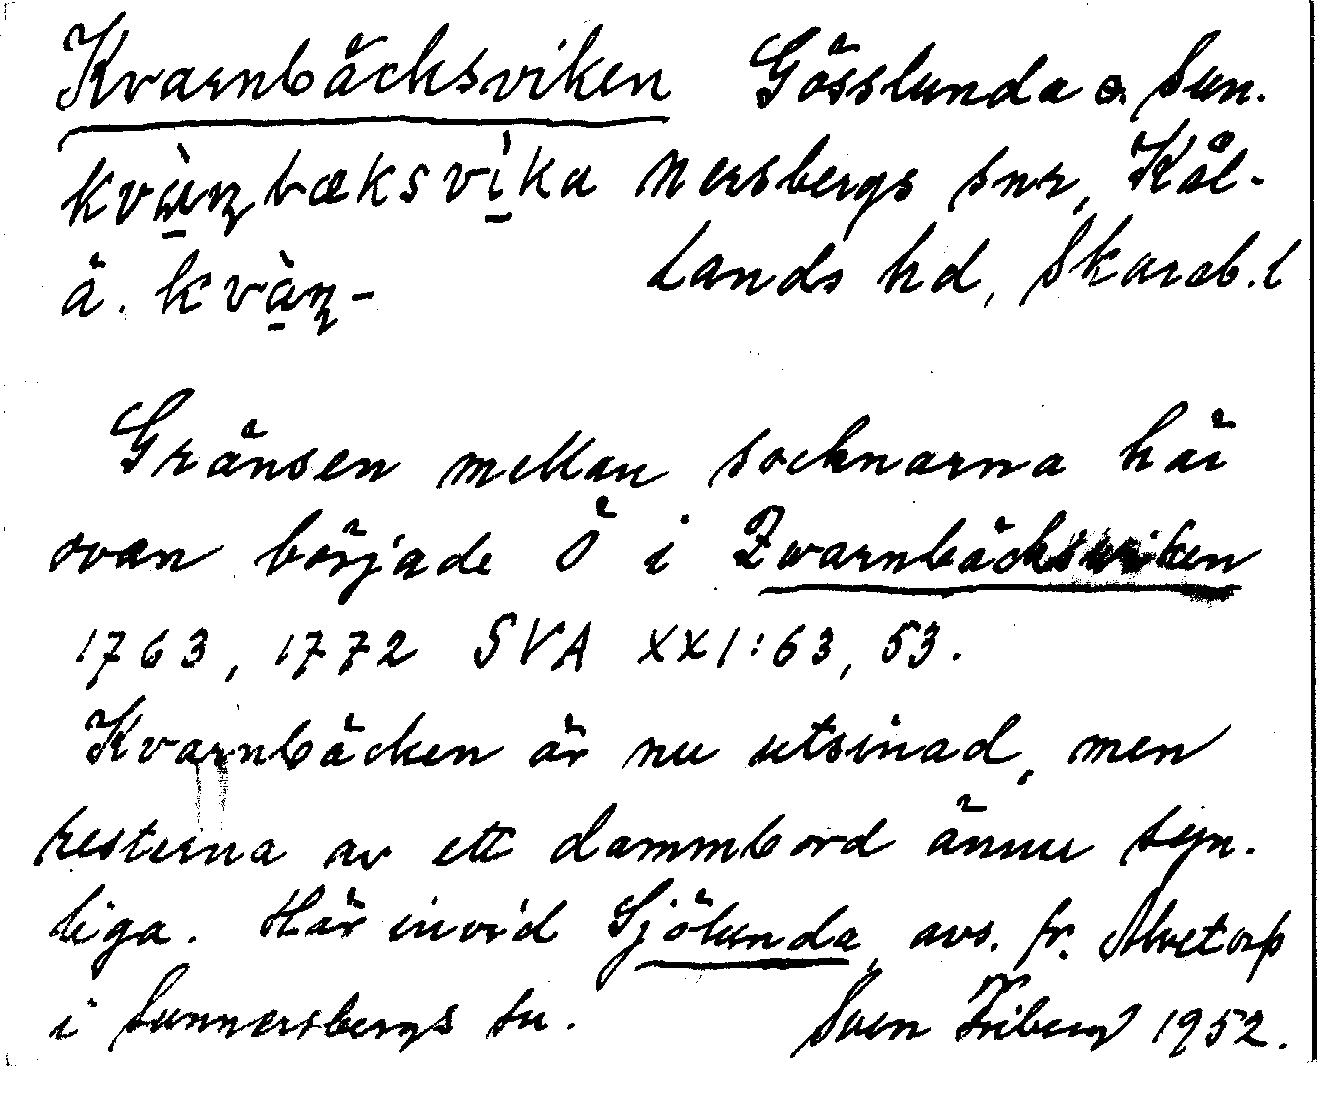 Kvarnbäcksviken Gösslunda o. Sun-
kvàṇbæksvìka nersbergs snr, Kål-
ä. kvàṇ- lands hd, Skarab. l
Gränsen mellan socknarna här
ovan började Ö i Qwarnbäckswiken
1763, 1772 SVA XXI:63, 53.
Kvarnbäcken är nu utsinad, men
resterna av ett dammbord ännu syn-
liga. Här invid Sjölunda, avs. fr. Alvetorp
i Sunnersbergs sn. Sven Friberg 1952.